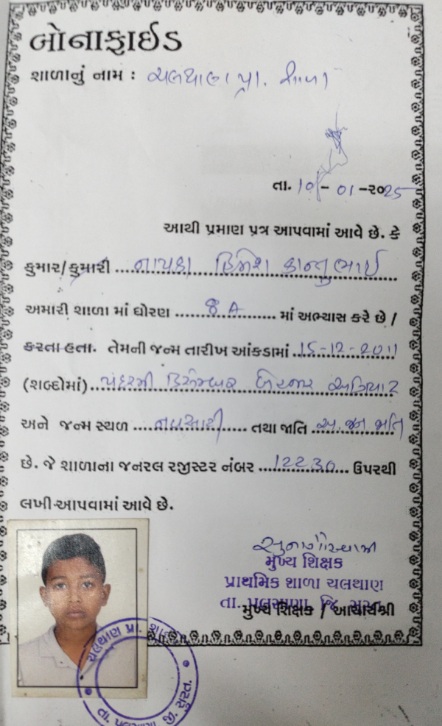 બોનાફાઈડ
શાળાનું નામ : ચલથાણ પ્રા. શાળા
તા. 10 - 01 -૨૦25
આથી પ્રમાણ પત્ર આપવામાં આવે છે. કે
કુમાર/કુમારી નાયકા હિતેશ કાનુભાઈ
અમારી શાળા માં ધોરણ 8 A માં અભ્યાસ કરે છે /
કરતા હતા. તેમની જન્મ તારીખ આંકડામાં 15-12-2011
(શબ્દોમાં) પંદરમી ડિસેમ્બર બેહજાર અગિયાર
અને જન્મ સ્થળ નવસારી તથા જાતિ અ.જન જાતિ
છે. જે શાળાના જનરલ રજીસ્ટર નંબર 12230 ઉપરથી
લખી આપવામાં આવે છે.
મુખ્ય શિક્ષક
પ્રાથમિક શાળા ચલથાણ
તા. પલસાણા જિ. સુરત
મુખ્ય શિક્ષક / આચાર્યશ્રી
ચલથાણ પ્રા. શાળા
તા. પલસાણા જી. સુરત.